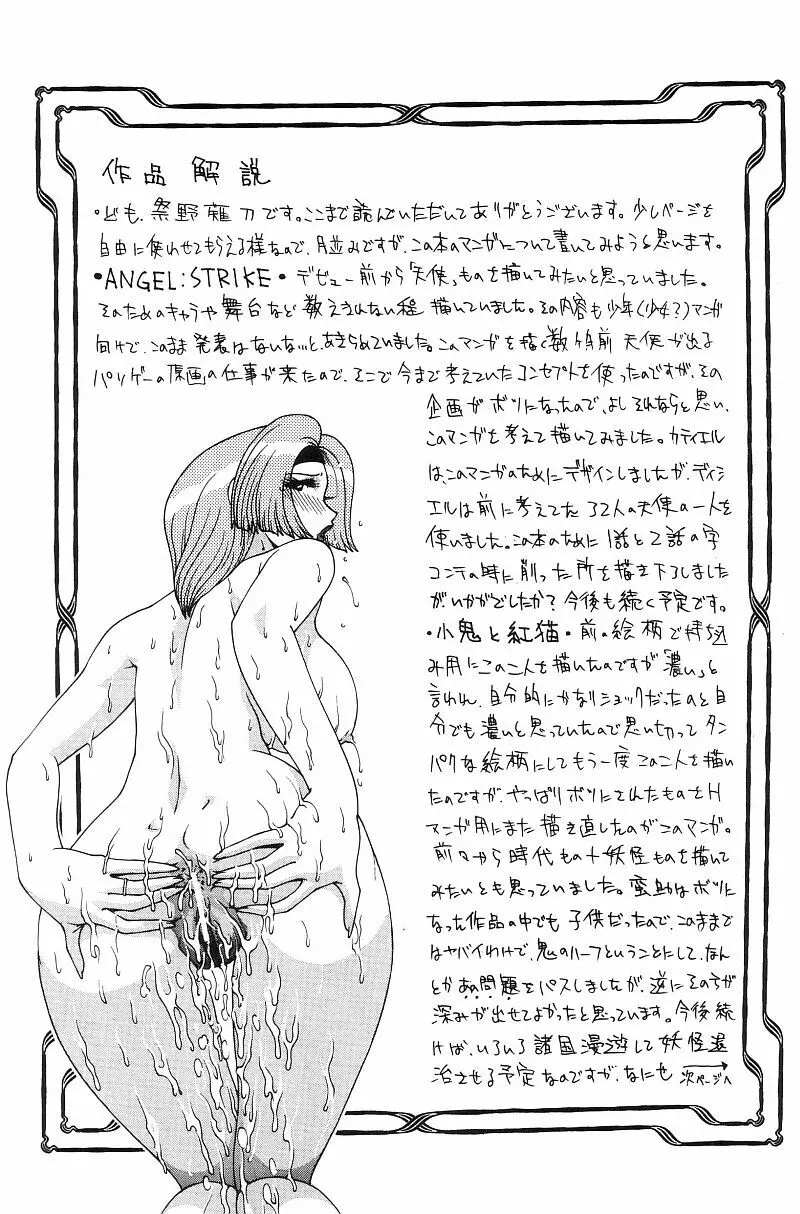 作品解説
・ども、祭野薙刀です。ここまで読んでいただいてありがとうございます。少しページを
自由に使わせてもらえる様なので、月並みですが、この本のマンガについて書いてみようと思います。
・ANGEL:STRIKE・デビュー前から「天使」ものを描いてみたいと思っていました。
そのためのキャラや舞台など数えきれない程描いていました。その内容も少年(少女?)マンガ
向けで、このまま発表はないな、と、あきらめていました。このマンガを描く数ヶ月前天使が出る
パソゲーの原画の仕事が来たので、そこで今まで考えていたコンセプトを使ったのですが、その
企画がボツになったので、よしそれならと思い、
このマンガを考えて描いてみました。カティエル
は、このマンガのためにデザインしましたが、ディシ
エルは前に考えてた32人の天使の一人を
使いました。この本のために1話と2話の字
コンテの時に削った所を描き下ろしました
がいかがでしたか?今後も続く予定です。
・小鬼と紅猫・前の絵柄で持ち込
み用にこの二人を描いたのですが「濃い」と
言われ、自分的にかなりショックだったのと自
分でも濃いと思っていたので思い切ってタン
パクな絵柄にしてもう一度この二人を描い
たのですが、やっぱりボツにされたものをH
マンガ用にまた描き直したのがこのマンガ。
前々から時代もの+妖怪ものを描いて
みたいとも思っていました。蛮助はボツに
なった作品の中でも子供だったので、このままで
はヤバイわけで、鬼のハーフということにして、なん
とかあの問題をパスしましたが、逆にその方が
深みが出せてよかったと思っています。今後続
けば、いろいろ諸国漫遊して妖怪退
治させる予定なのですが、なにも 次ページへ